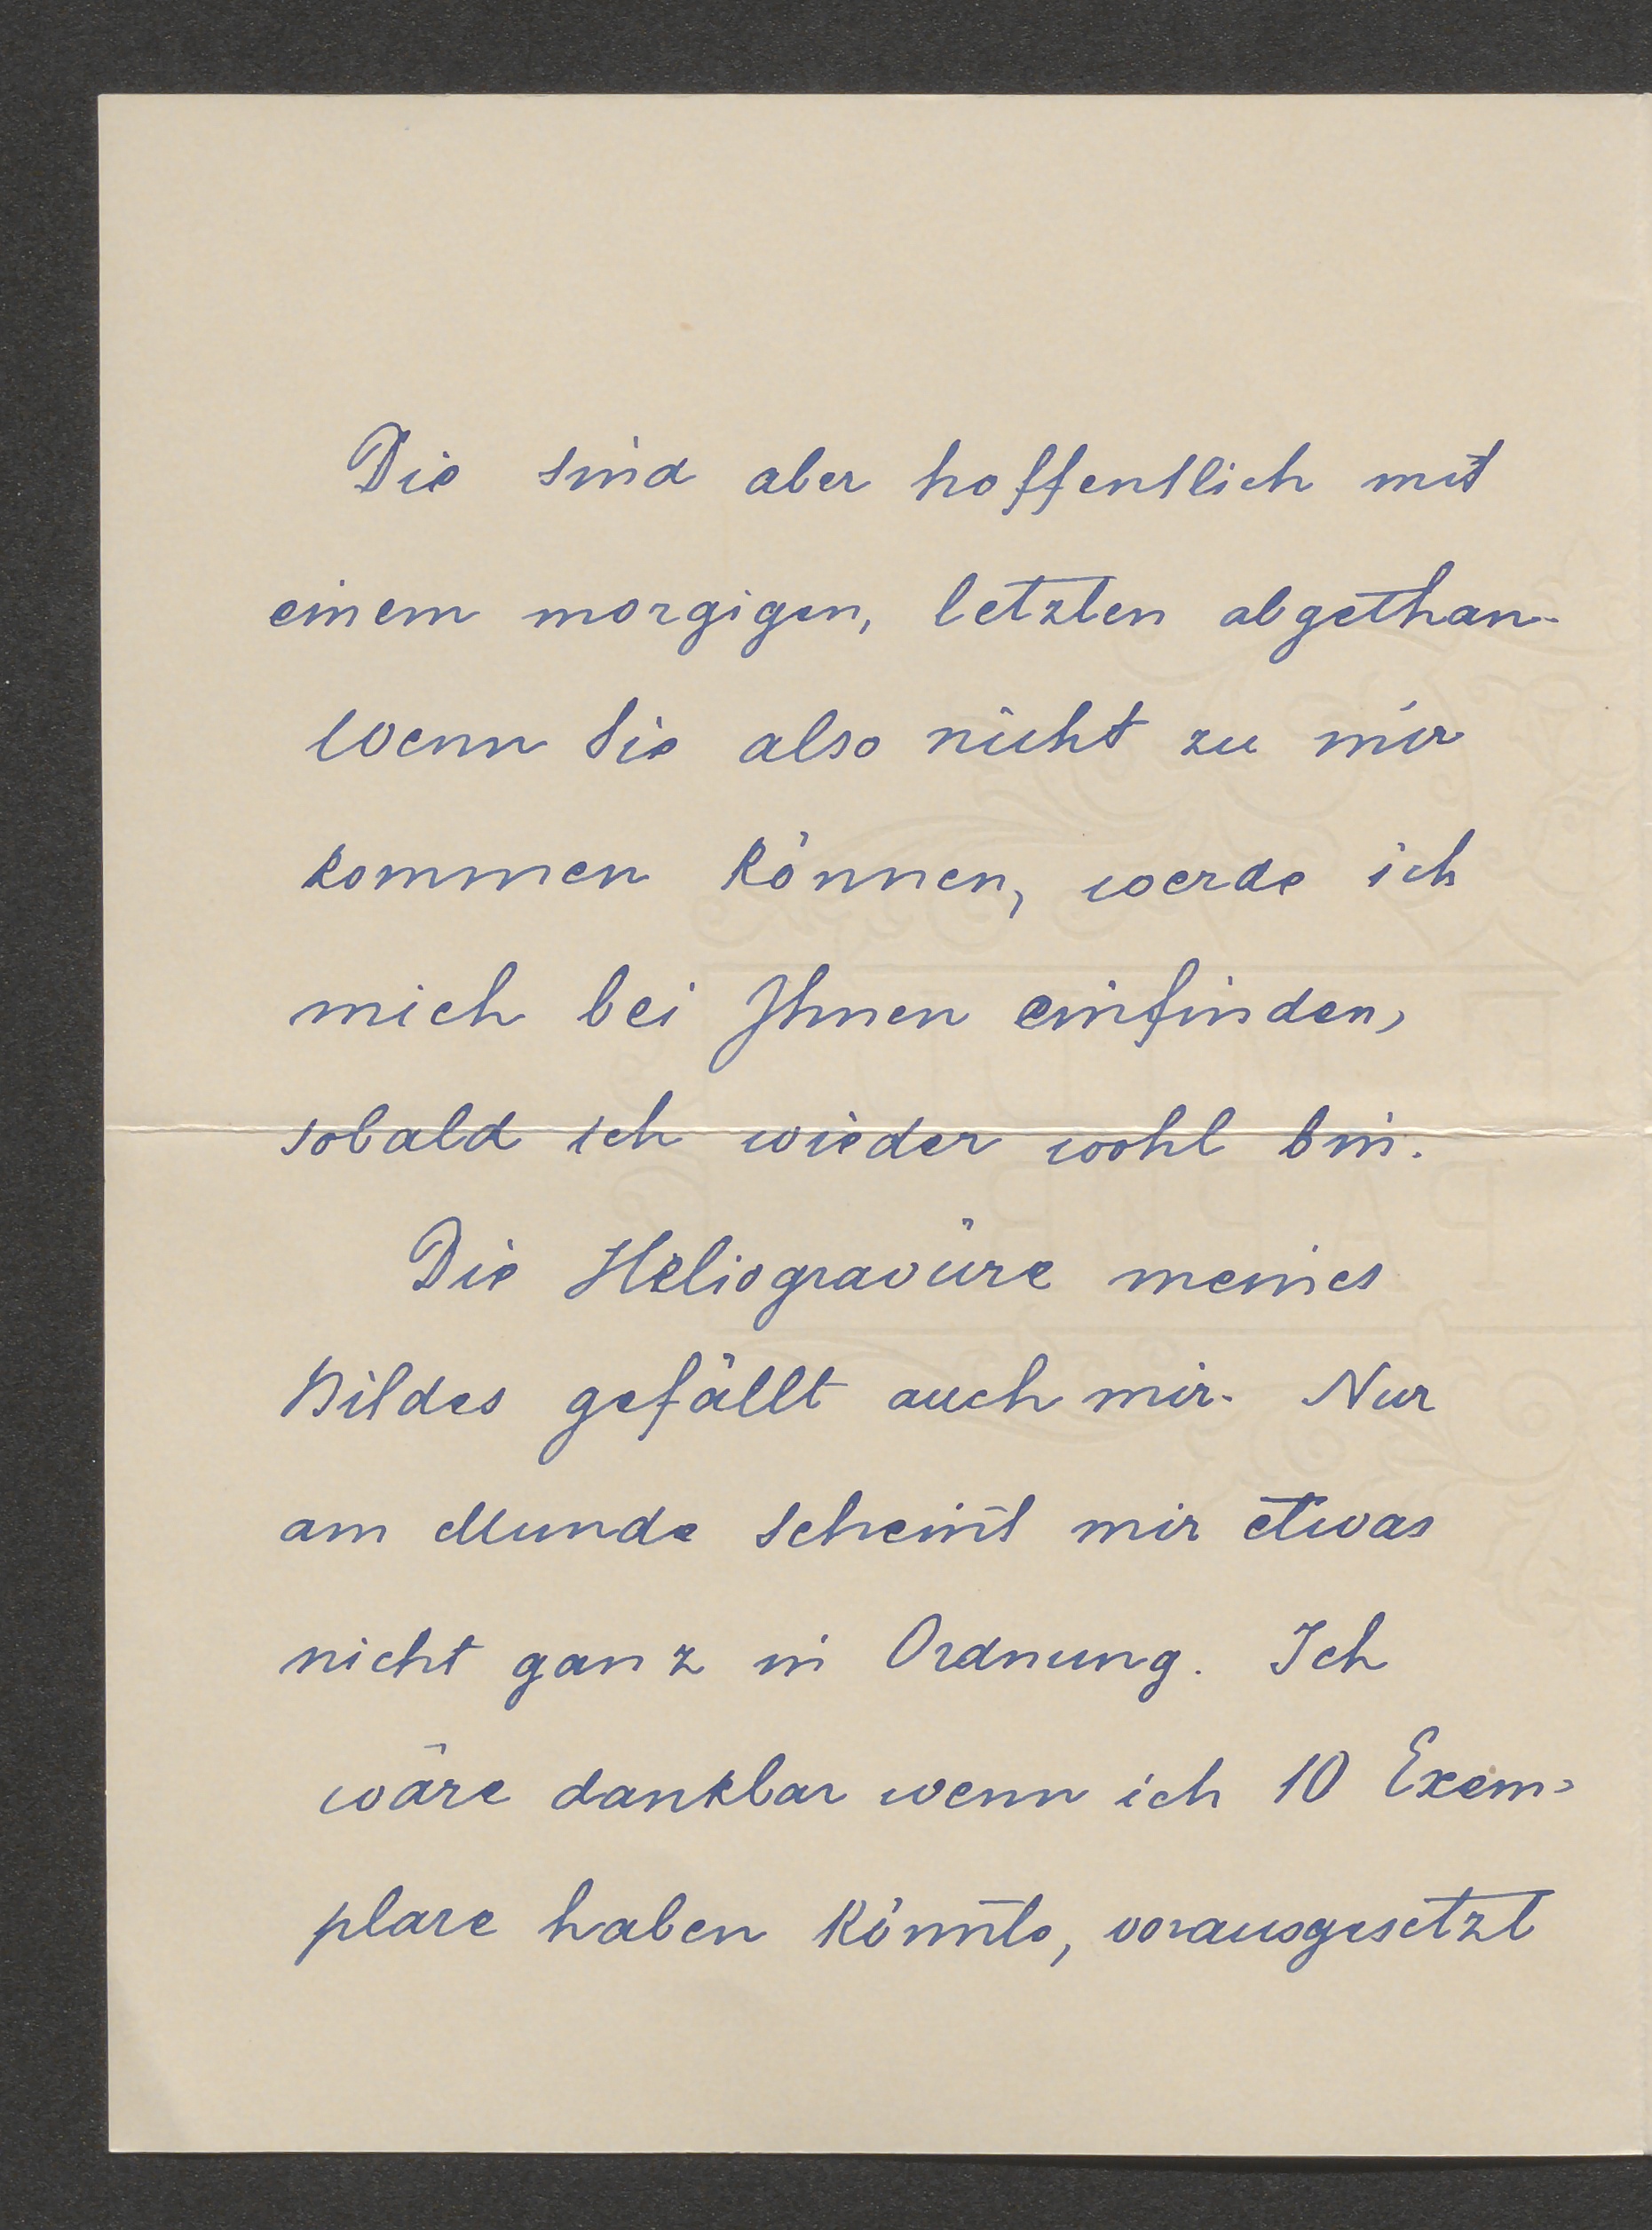 Die sind aber hoffentlich mit
einem morgigen, letzten abgethan.
Wenn Sie also nicht zu mir
kommen können, werde ich
mich bei Ihnen einfinden,
sobald ich wieder wohl bin.
Die Heliogravüre meines
Bildes gefällt auch mir. Nur
am Munde scheint mir etwas
nicht ganz in Ordnung. Ich
wäre dankbar wenn ich 10 Exem-
plare haben könnte, vorausgesetzt